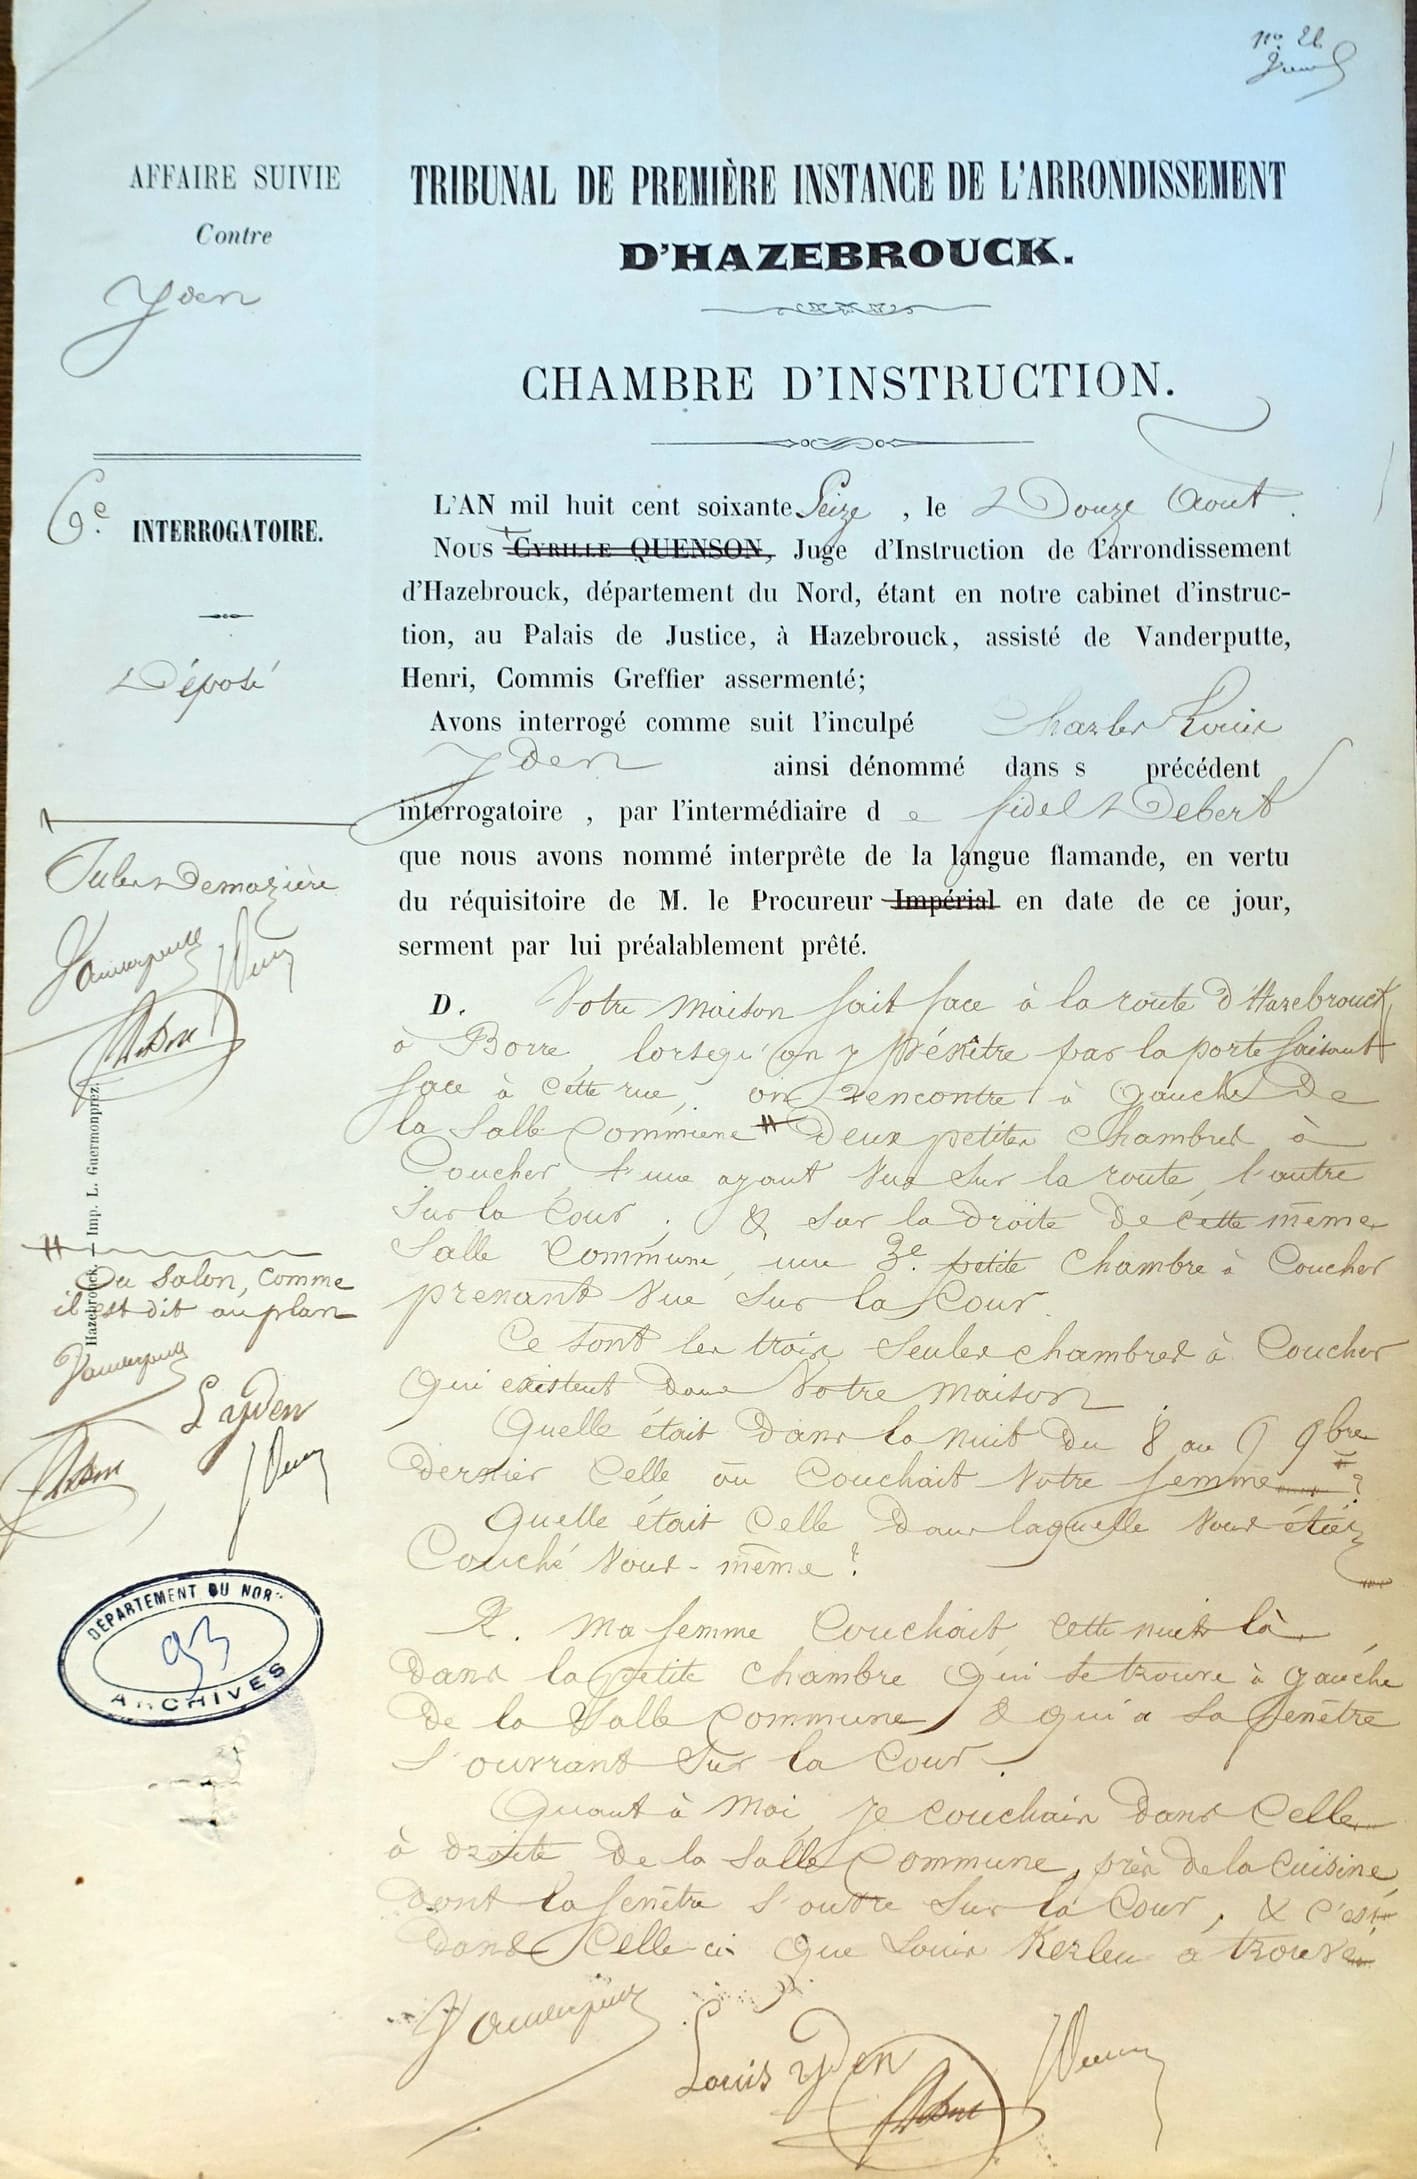 nº 26
AFFAIRE SUIVIE
Contre
Yden
6e INTERROGATOIRE.
Déposé
Jules Demazière
Vanderputte
Hazebrouck. — Imp. L. Guermonprez.
# Ou salon, comme
il est dit au plan
Vanderputte
L yden
DÉPARTEMENT DU NORD
93
ARCHIVES
TRIBUNAL DE PREMIÈRE INSTANCE DE L'ARRONDISSEMENT
D'HAZEBROUCK.
CHAMBRE D'INSTRUCTION.
L'AN mil huit cent soixante Seize, le Douze Aout.
NOUS CYRILLE QUENSON, Juge d'Instruction de l'arrondissement
d'Hazebrouck, département du Nord, étant en notre cabinet d'instruc-
tion, au Palais de Justice, à Hazebrouck, assisté de Vanderputte,
Henri, Commis Greffier assermenté;
Avons interrogé comme suit l'inculpé Charles Louis
Yden ainsi dénommé dans s précédent
interrogatoire, par l'intermédiaire d e fidel Debert
que nous avons nommé interprête de la langue flamande, en vertu
du réquisitoire de M. le Procureur Impérial en date de ce jour,
serment par lui préalablement prêté.
D. Votre maison fait face à la route d'Hazebrouck
à Borre, lorsqu'on y pénêtre par la porte faisant
face à cette rue, on rencontre à gauche de
la Salle Commune # deux petites Chambres à
Coucher, l'une ayant vue sur la route, l'autre
sur la Cour; & sur la droite de cette même
Salle Commune, une 3e petite Chambre à Coucher
prenant vue sur la Cour.
Ce sont les trois seules chambres à Coucher
qui existent dans votre maison
Quelle était dans la nuit du 8 au 9 9bre
dernier celle où Couchait votre femme ?
Quelle était celle dans laquelle vous étiez
Couché vous-même ?
R. Ma femme Couchait, cette nuit là,
dans la petite chambre qui se trouve à gauche
de la Salle Commune, & qui a sa fenêtre
s'ouvrant sur la Cour.
Quant à moi, je couchais dans Celle
à droite de la Salle Commune, près de la Cuisine,
dont la fenêtre s'ouvre sur la Cour, & c'est
dans Celle-ci que Louis Kerleu a trouvé
Vanderputte
Louis yden